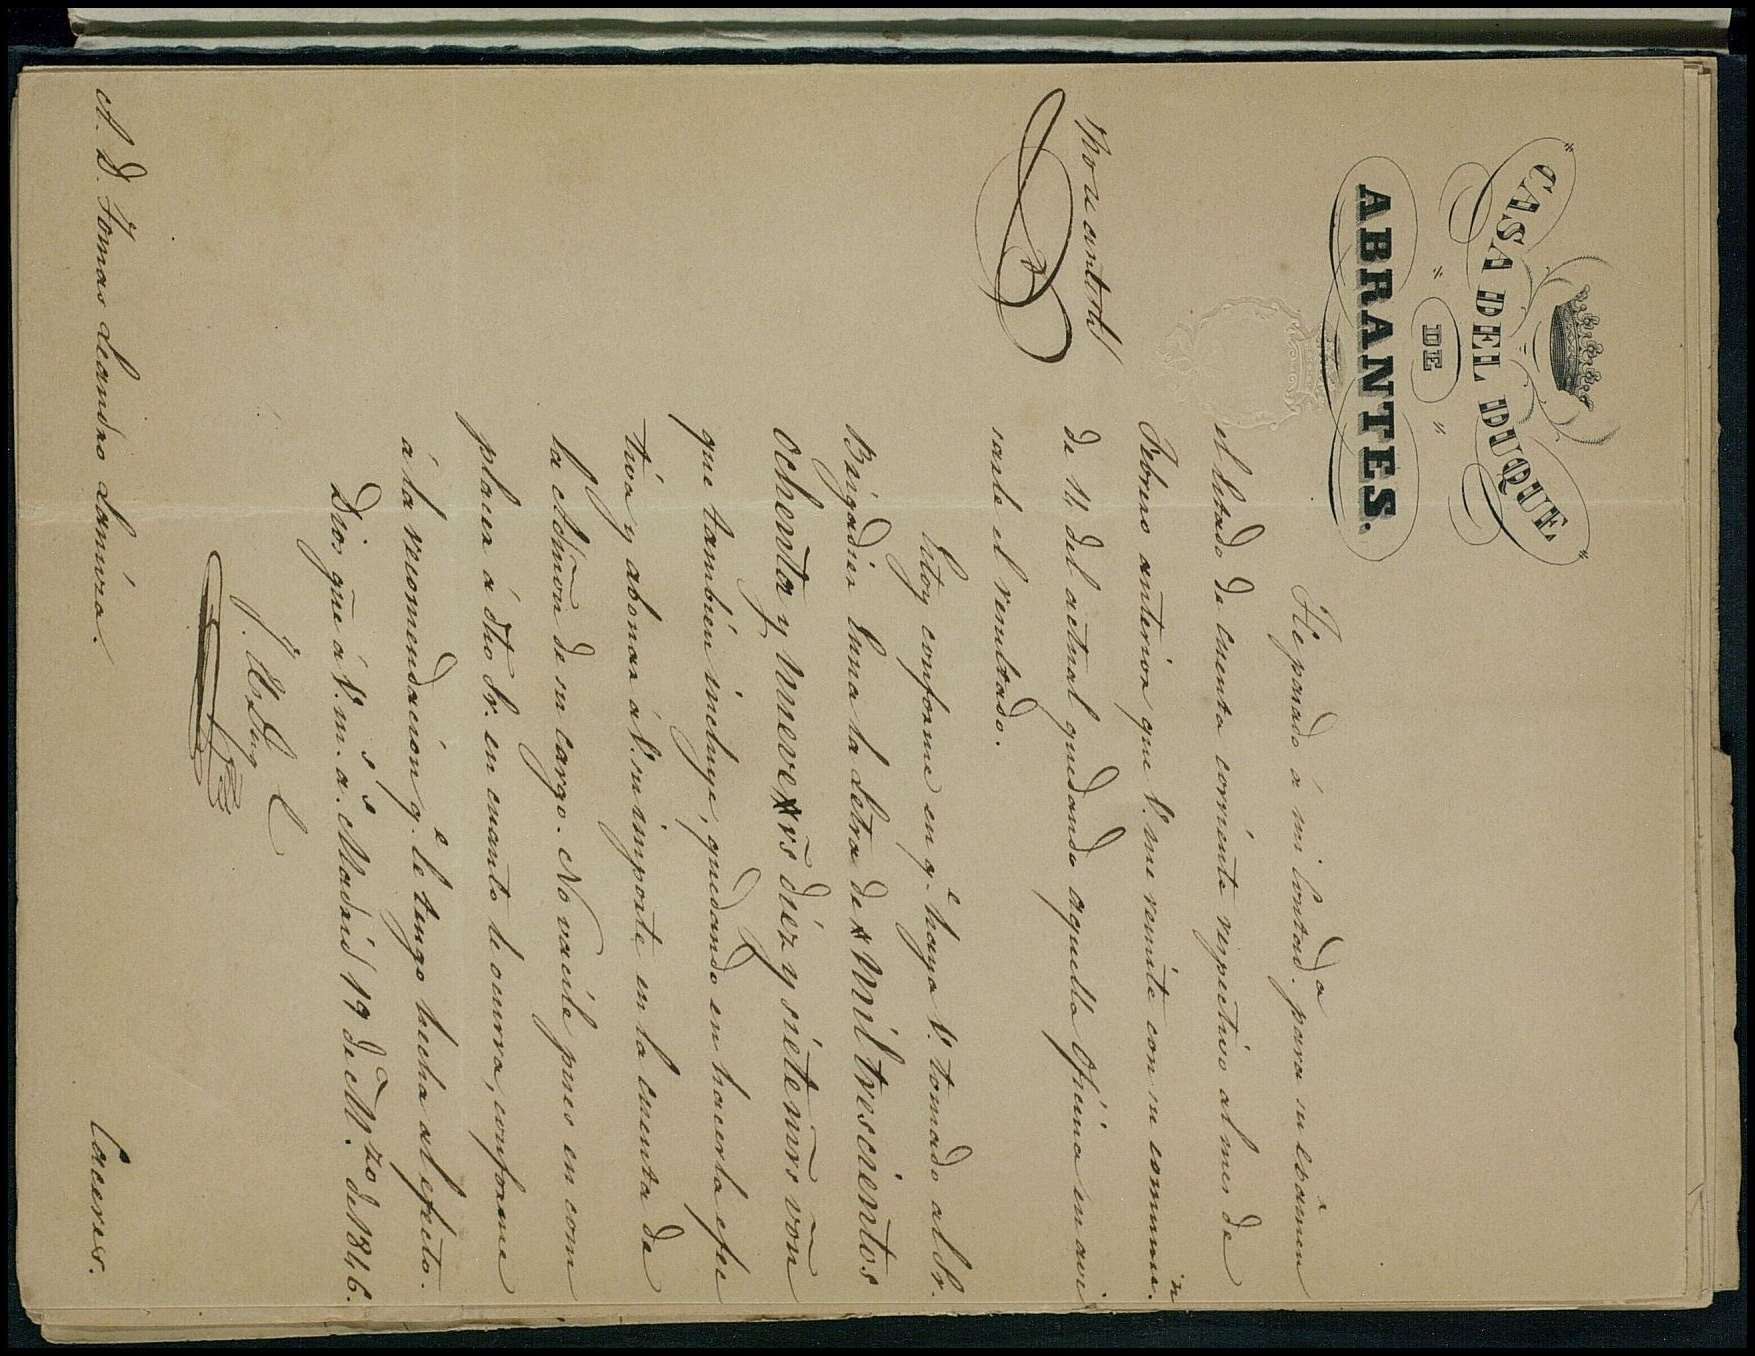 CASA DEL DUQUE
DE
ABRANTES.
He pasado á mi Contad.ª para su exâmen
el Estado de cuenta corriente respectivo al mes de
Febrero anterior que V. me remite con su comuni.n
de 14 del actual quedando aquella Oficina en avi
sarle el resultado.
Estoy conforme en q.e haya V. tomado al Sr.
Brigadier Luna la Letra de mil trescientos
Ochenta y nueve rs̃ diez y siete mrs võn
que tambien incluye, quedando en hacerla efec
tiva y abonar á V. su importe en la cuenta de
la Admon de su cargo. No vacile pues en com
placer á dho Sr. en cuanto le ocurra, conforme
á la recomendacion q.e le tengo hecha al efecto.
Dios gue á V. m.s a.s Madrid 19 de M.zo de 1846.
A. D. Tomas Leandro
Caceres.